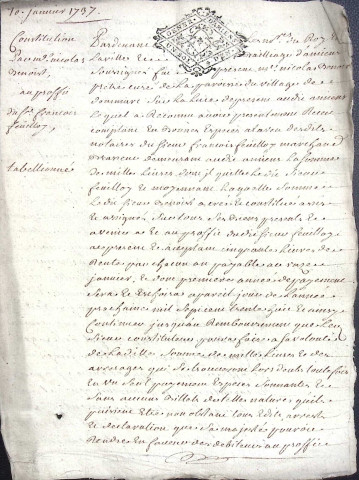 10. janvier 1737
Constitution
Par mr. nicolas
Benoist,
au proffit
du Sr. francois
feuilloy
tabellionné
Pardevant les nottes du Roy
La ville de
Soussignes fut present mr. nicolas Benoist
prestre cure de la paroisse du village de
demeurant Sur la Lure de present audit amiens
Lequel a Reconnu avoir presentement Receu
comptant en
notaires du Sieur francois feuilloy marchand
demeurant audit amiens La Somme
de milles Livres dont il quitte Ledit Sieur
feuilloy et moyennant Laquelle Somme
Ledit Sieur Benoist a cree et constitue
et assigne Sur tous Ses biens presents et
avenir et au proffit dudit Sieur feuilloy
ce present et acceptant cinquante Livres de
Rente par chacun an payable au onze
janvier, et dont premiere annee de payement
Sera et Echera a pareil jour de L'annee
prochaine mil Sept cent trente huit et ainsy
Continuer jusqu'au Remboursement que Led.
Sieur constituant poura faire a Sa volonté
de Laditte Somme de mille Livres et des
arrerages qui Se trouveront Lors deubs toutte fois
en un Seul payement Especes Sonnantes et
Sans aucuns Billets de telle nature qu'ils
puissent Etre non obstant tous Edits, arrests
et declaration que Sa majesté pouroit
Rendre en faveur des debiteurs au proffit